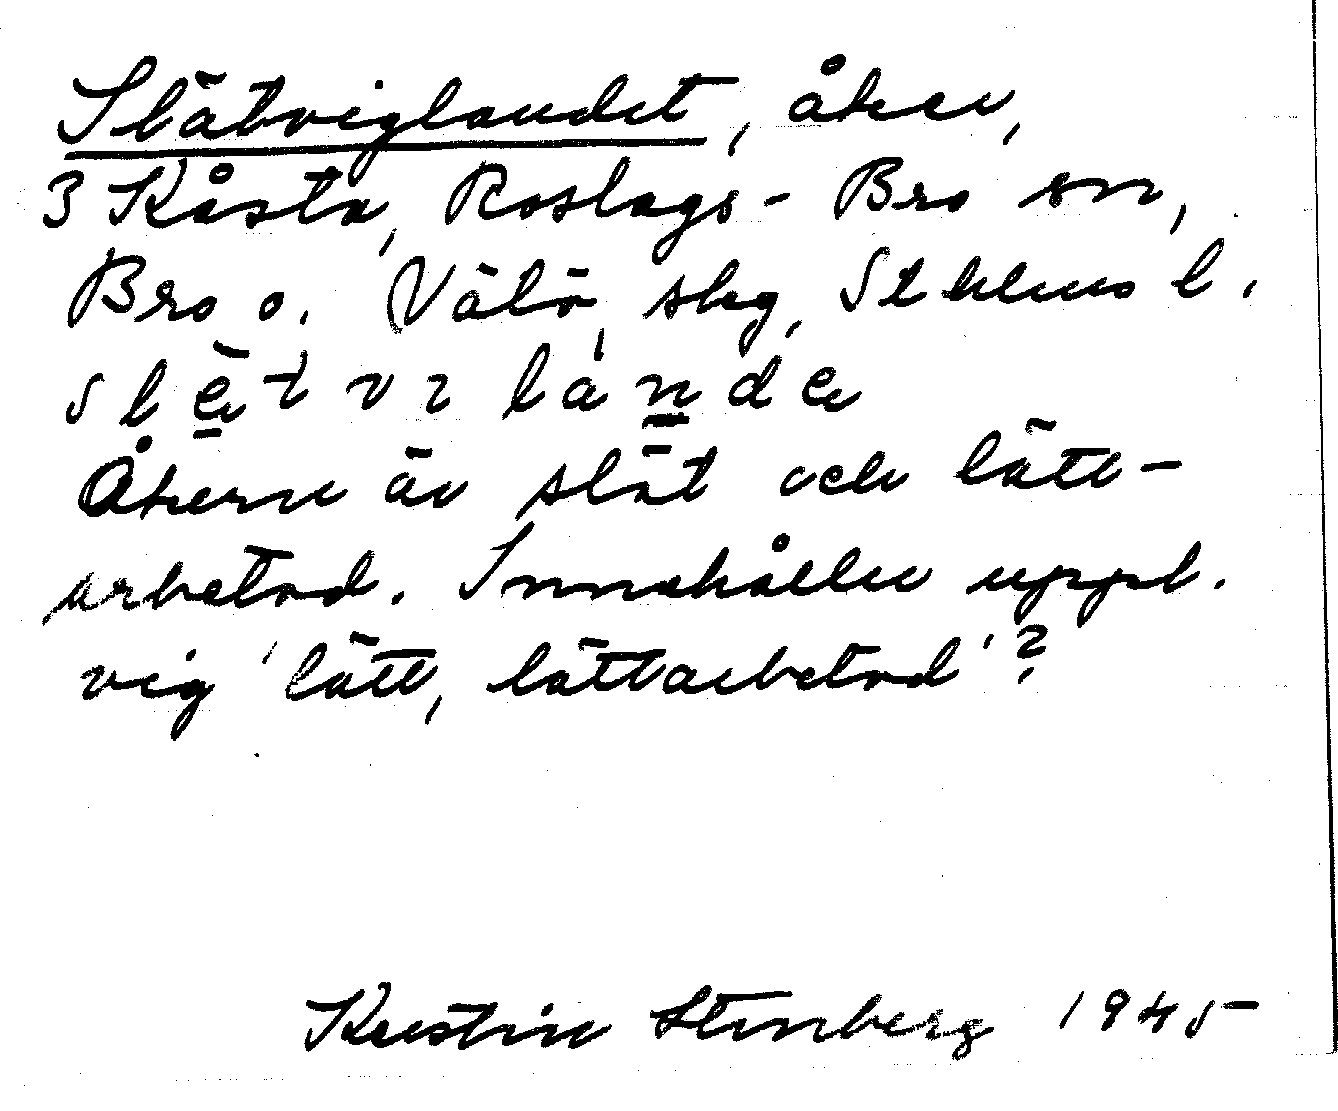 Slätviglandet, åker,
3 Kåsta, Roslags-Bro sn,
Bro o. Vätö skg, Sthlms l.
slätvilande, 
Åkern är slät och lätt-
arbetad. Innehåller uppl.
vig 'lätt, lättarbetad'?
Kerstin Stenberg 1945